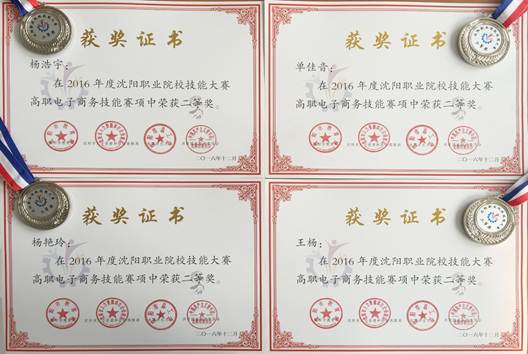 获奖证书
杨浩宇：
在2016年度沈阳职业院校技能大赛
高职电子商务技能赛项中荣获二等奖。
二〇一六年十二月
获奖证书
单佳音：
在2016年度沈阳职业院校技能大赛
高职电子商务技能赛项中荣获二等奖。
二〇一六年十二月
获奖证书
杨艳玲：
在2016年度沈阳职业院校技能大赛
高职电子商务技能赛项中荣获二等奖。
二〇一六年十二月
获奖证书
王杨：
在2016年度沈阳职业院校技能大赛
高职电子商务技能赛项中荣获二等奖。
二〇一六年十二月